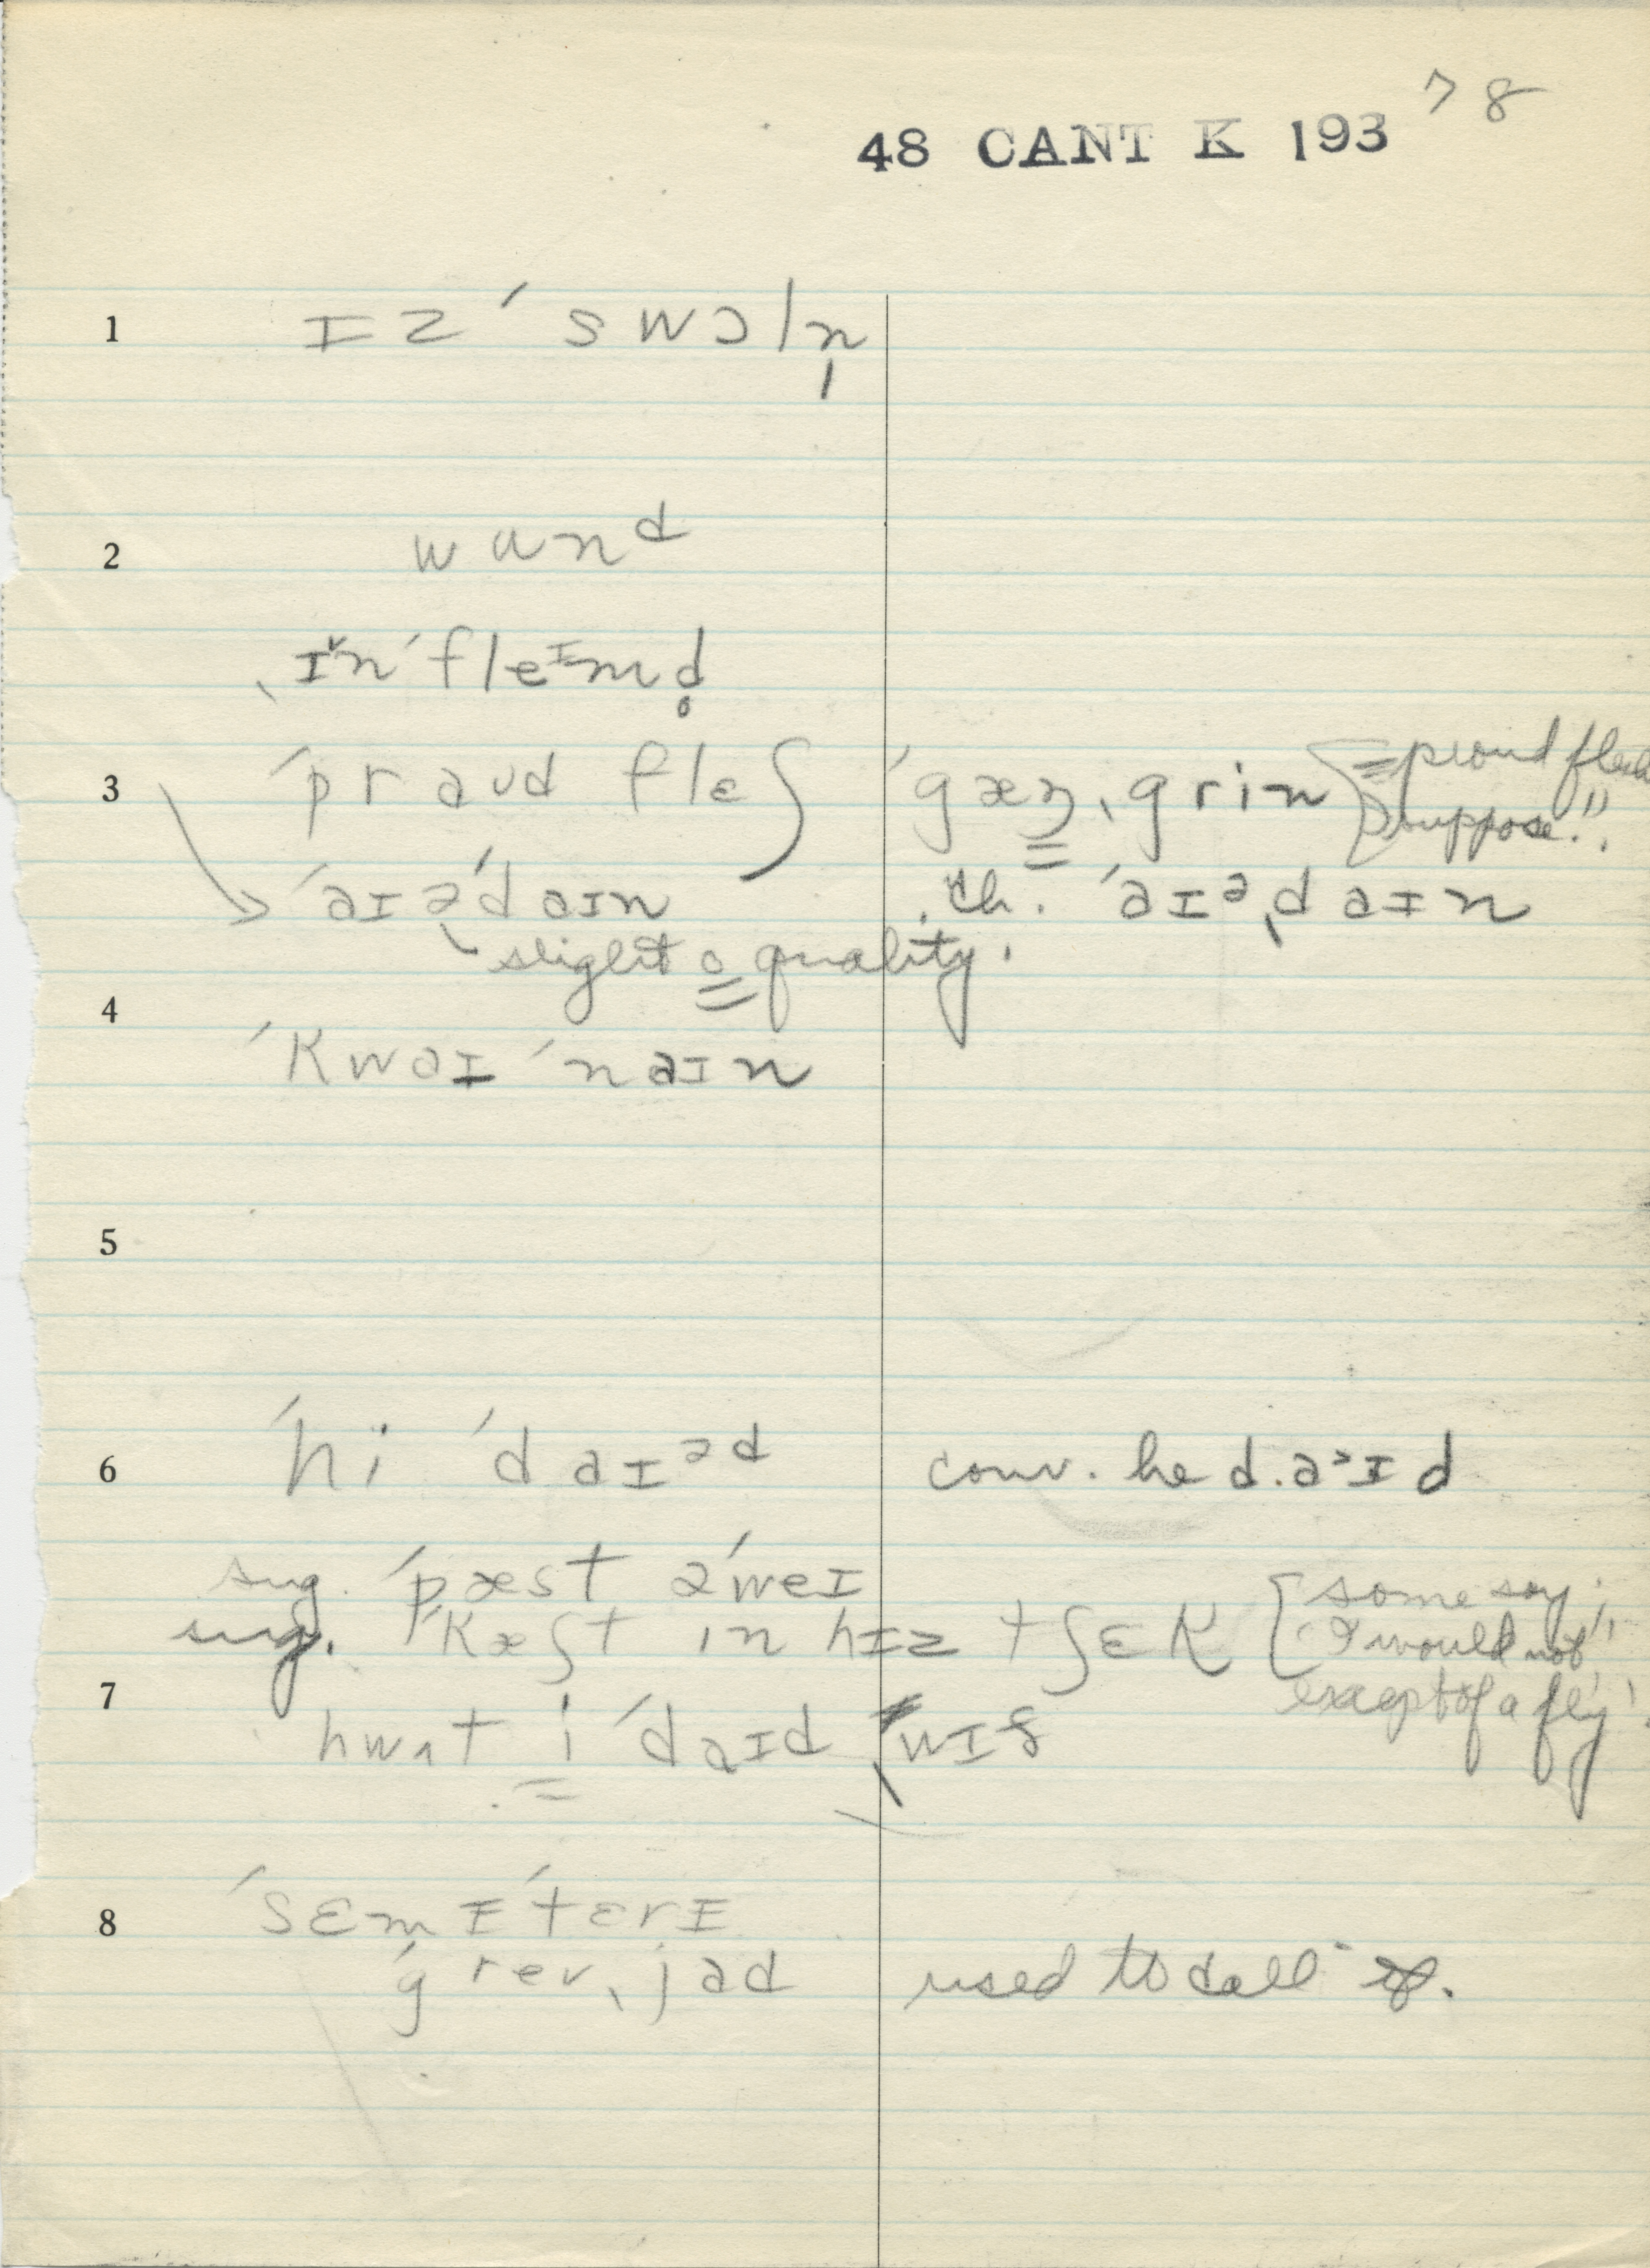 78
48 CANT K 193
1 ɪz ˈswɔln̩
2 wund
ˌɪn ˈfleɪmd̥
3 ˈpraʊd flɛʃ ˈgæŋˌgrin [= proud flesh
I suppose."]
ˈaɪəˈdaɪn ch. ˈaɪəˌdaɪn
slight o quality.
4
ˈkwaɪˈnaɪn
5
6 ˈhi ˈdaɪəd conv. he d.aᵊɪd
sug. ˈpæst əˈweɪ
sug. ˈkæʃt ɪn hɪz tʃɛk [some say;
I would not"
except of a fly".
7 hwʌt i ˈdaɪd ˌwɪð
8 ˈsɛmɪˈtɛrɪ
ˈgrevˌjad used to call it.